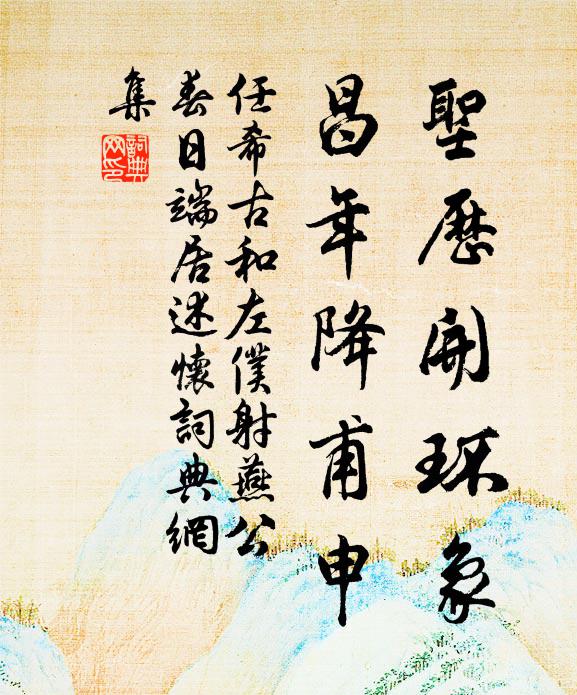 聖歷開环象
昌年降甫申
任希古和左僕射燕公
春日端居述懷詞典網
集
詞典網印